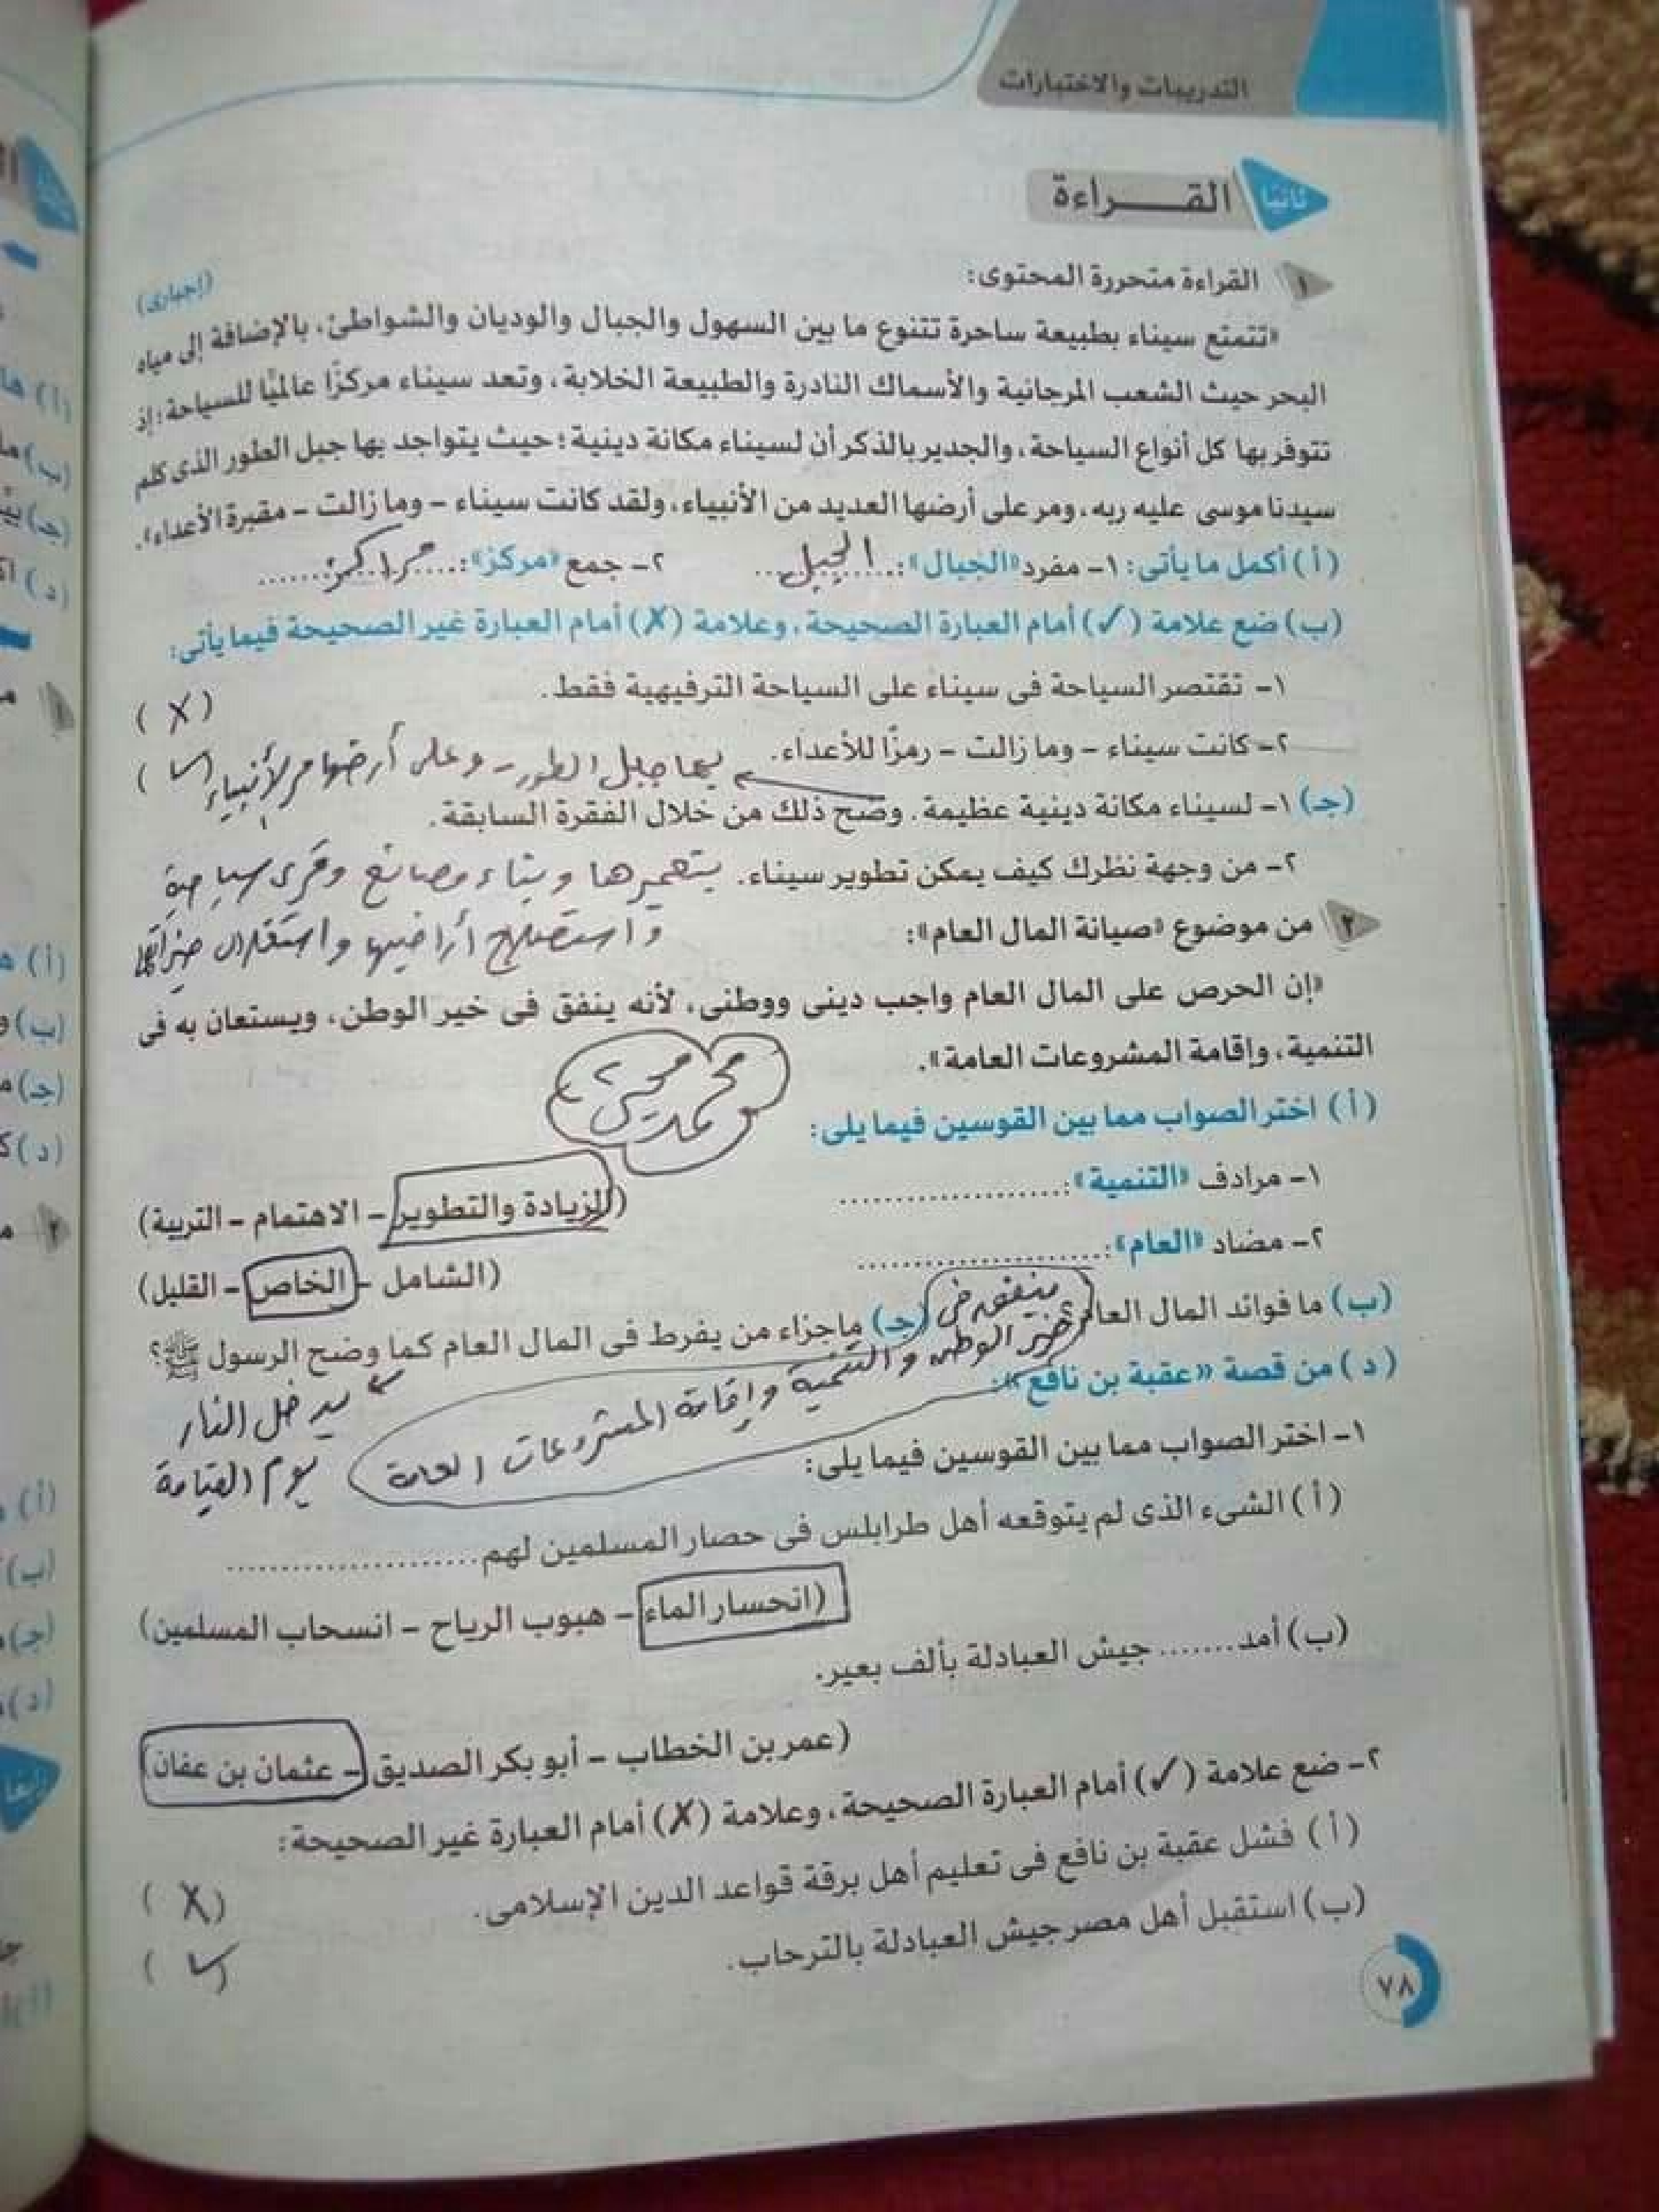 التدريبات والاختبارات
ثانيًا القـــــراءة
١ القراءة متحررة المحتوى: (إجبارى)
«تتمتع سيناء بطبيعة ساحرة تتنوع ما بين السهول والجبال والوديان والشواطئ، بالإضافة إلى مياه
البحر حيث الشعب المرجانية والأسماك النادرة والطبيعة الخلابة، وتعد سيناء مركزًا عالميًا للسياحة؛ إذ
تتوفر بها كل أنواع السياحة، والجدير بالذكر أن لسيناء مكانة دينية؛ حيث يتواجد بها جبل الطور الذى كلم
سيدنا موسى عليه ربه، ومر على أرضها العديد من الأنبياء، ولقد كانت سيناء - وما زالت - مقبرة الأعداء».
(أ) أكمل ما يأتى: ١- مفرد «الجبال»: الجبل ٢- جمع «مركز»: مراكز
(ب) ضع علامة (✓) أمام العبارة الصحيحة، وعلامة (✗) أمام العبارة غير الصحيحة فيما يأتى:
١- تقتصر السياحة فى سيناء على السياحة الترفيهية فقط. (✗)
٢- كانت سيناء - وما زالت - رمزًا للأعداء. (✓)
بها جبل الطور - وعلى أرضها مر الأنبياء
(جـ) ١- لسيناء مكانة دينية عظيمة. وضح ذلك من خلال الفقرة السابقة.
٢- من وجهة نظرك كيف يمكن تطوير سيناء. بتعميرها وبناء مصانع وقرى سياحية
واستصلاح أراضيها واستغلال خيراتها
٢ من موضوع «صيانة المال العام»:
«إن الحرص على المال العام واجب دينى ووطنى، لأنه ينفق فى خير الوطن، ويستعان به فى
التنمية، وإقامة المشروعات العامة».
محمد
(أ) اختر الصواب مما بين القوسين فيما يلى:
١- مرادف «التنمية»: ....................
(الزيادة والتطوير - الاهتمام - التربية)
٢- مضاد «العام»: ....................
(الشامل - الخاص - القليل)
(ب) ما فوائد المال العام؟ (جـ) ما جزاء من يفرط فى المال العام كما وضح الرسول ﷺ؟
ينفق فى
خير الوطن والتنمية وإقامة المشروعات العامة
سيدخل النار
يوم القيامة
(د) من قصة «عقبة بن نافع»:
١- اختر الصواب مما بين القوسين فيما يلى:
(أ) الشىء الذى لم يتوقعه أهل طرابلس فى حصار المسلمين لهم ....................
(انحسار الماء - هبوب الرياح - انسحاب المسلمين)
(ب) أمد ....... جيش العبادلة بألف بعير.
(عمر بن الخطاب - أبو بكر الصديق - عثمان بن عفان)
٢- ضع علامة (✓) أمام العبارة الصحيحة، وعلامة (✗) أمام العبارة غير الصحيحة:
(أ) فشل عقبة بن نافع فى تعليم أهل برقة قواعد الدين الإسلامى. (✗)
(ب) استقبل أهل مصر جيش العبادلة بالترحاب. (✓)
٧٨